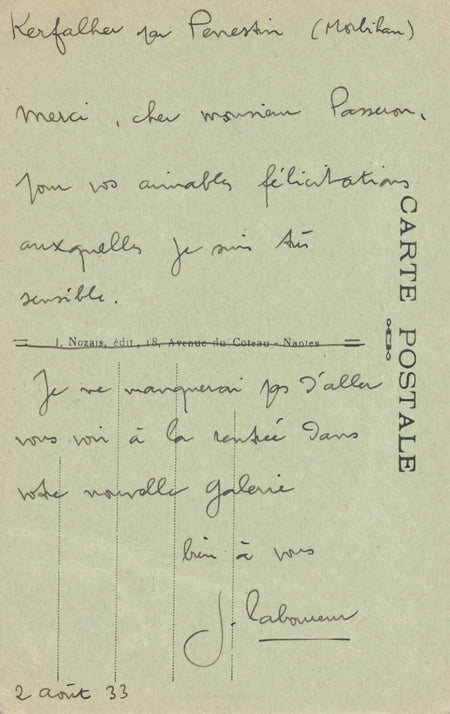 Kerfalher par Penestin (Morbihan)
Merci, cher monsieur Passeron,
pour vos aimables félicitations
auxquelles je suis très
sensible.
J. Nozais, édit, 18, Avenue du Coteau - Nantes
CARTE POSTALE
Je ne manquerai pas d'aller
vous voir à la rentrée dans
votre nouvelle galerie
bien à vous
J. Laboureur
2 août 33